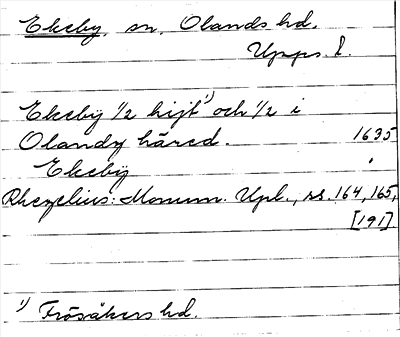 Ekeby, sn, Olands hd.
Upps. l.
Ekebÿ 1/2 hijt¹⁾ och 1/2 i
Olandz häred. 1635
Ekebÿ "
Rhezelius: Monum. Upl., ss. 164, 165,
[191].
¹⁾ Frösåkers hd.